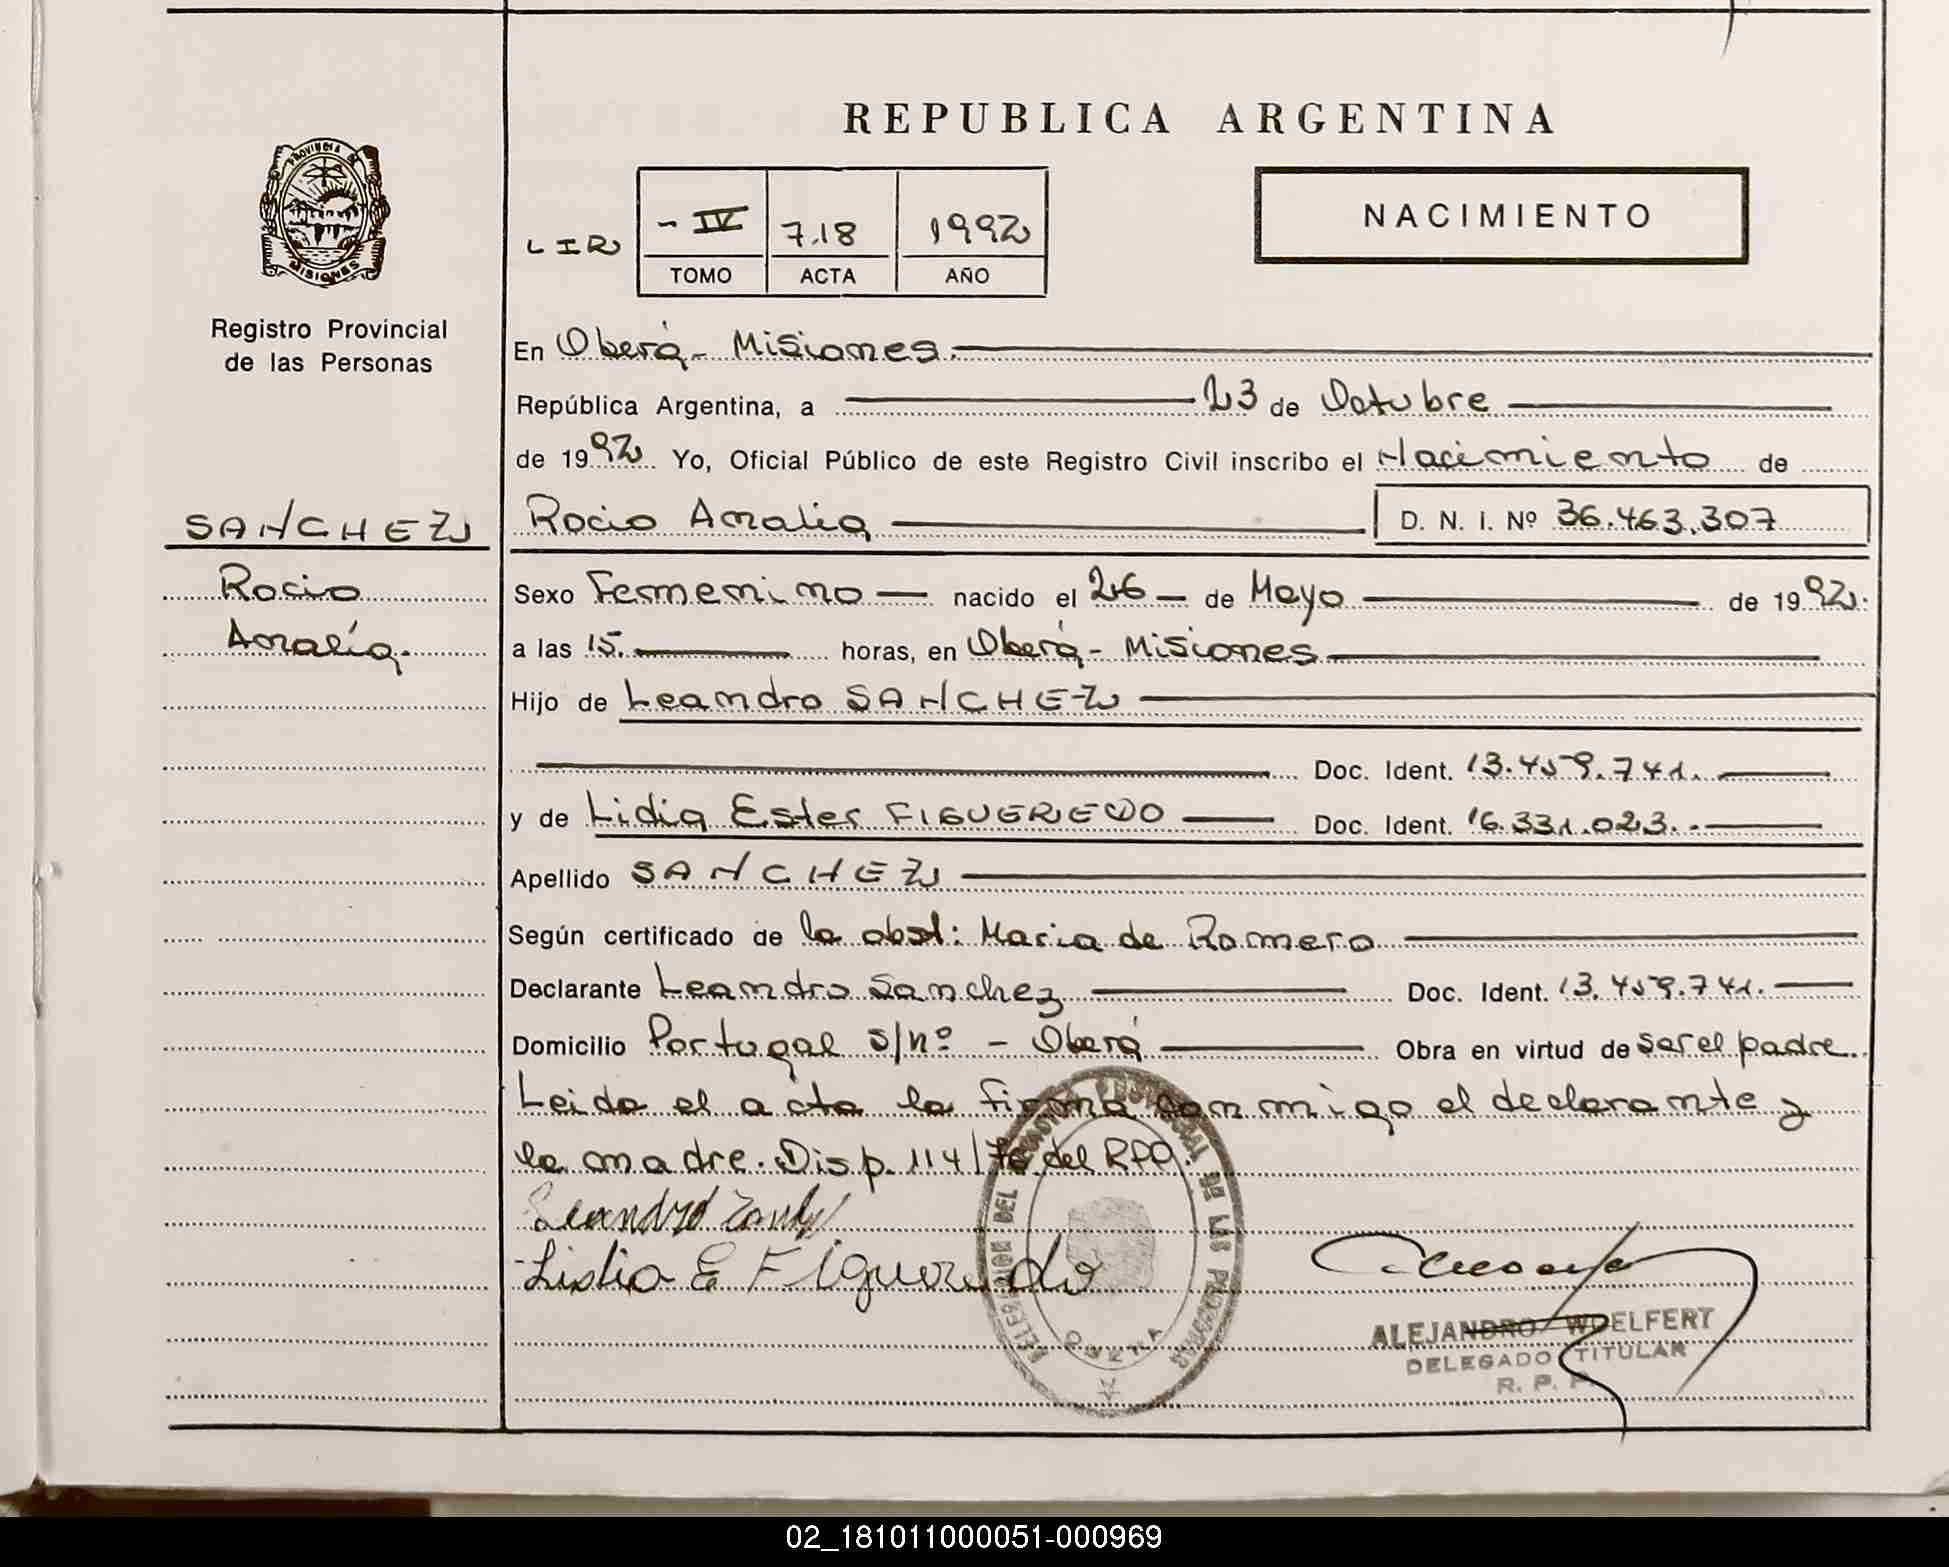 REPUBLICA ARGENTINA
PROVINCIA DE
MISIONES
Registro Provincial
de las Personas
LIR
- IV 718 1992
TOMO ACTA AÑO
NACIMIENTO
En Oberá - Misiones.
República Argentina, a 23 de Octubre
de 1992 Yo, Oficial Público de este Registro Civil inscribo el Nacimiento de
SANCHEZ
Rocio Amalia D. N. I. Nº 36.463.307
Rocio
Amalia.
Sexo Femenino nacido el 26 de Mayo de 1992.
a las 15. horas, en Oberá - Misiones
Hijo de Leandro SANCHEZ
Doc. Ident. 13.459.741.
y de Lidia Ester FIGUEREDO Doc. Ident. 16.331.023.
Apellido SANCHEZ
Según certificado de la obst: Maria de Romero
Declarante Leandro Sanchez Doc. Ident. 13.459.741.
Domicilio Portugal s/nº - Oberá Obra en virtud de ser el padre.
Leida el acta la firma conmigo el declarante y
la madre. Disp. 114/76 del RPP.
Leandro
Lidia E Figueredo
DELEGACION DEL REGISTRO PROVINCIAL DE LAS PERSONAS
ALEJANDRO WOELFERT
DELEGADO TITULAR
R. P. P.
02_181011000051-000969